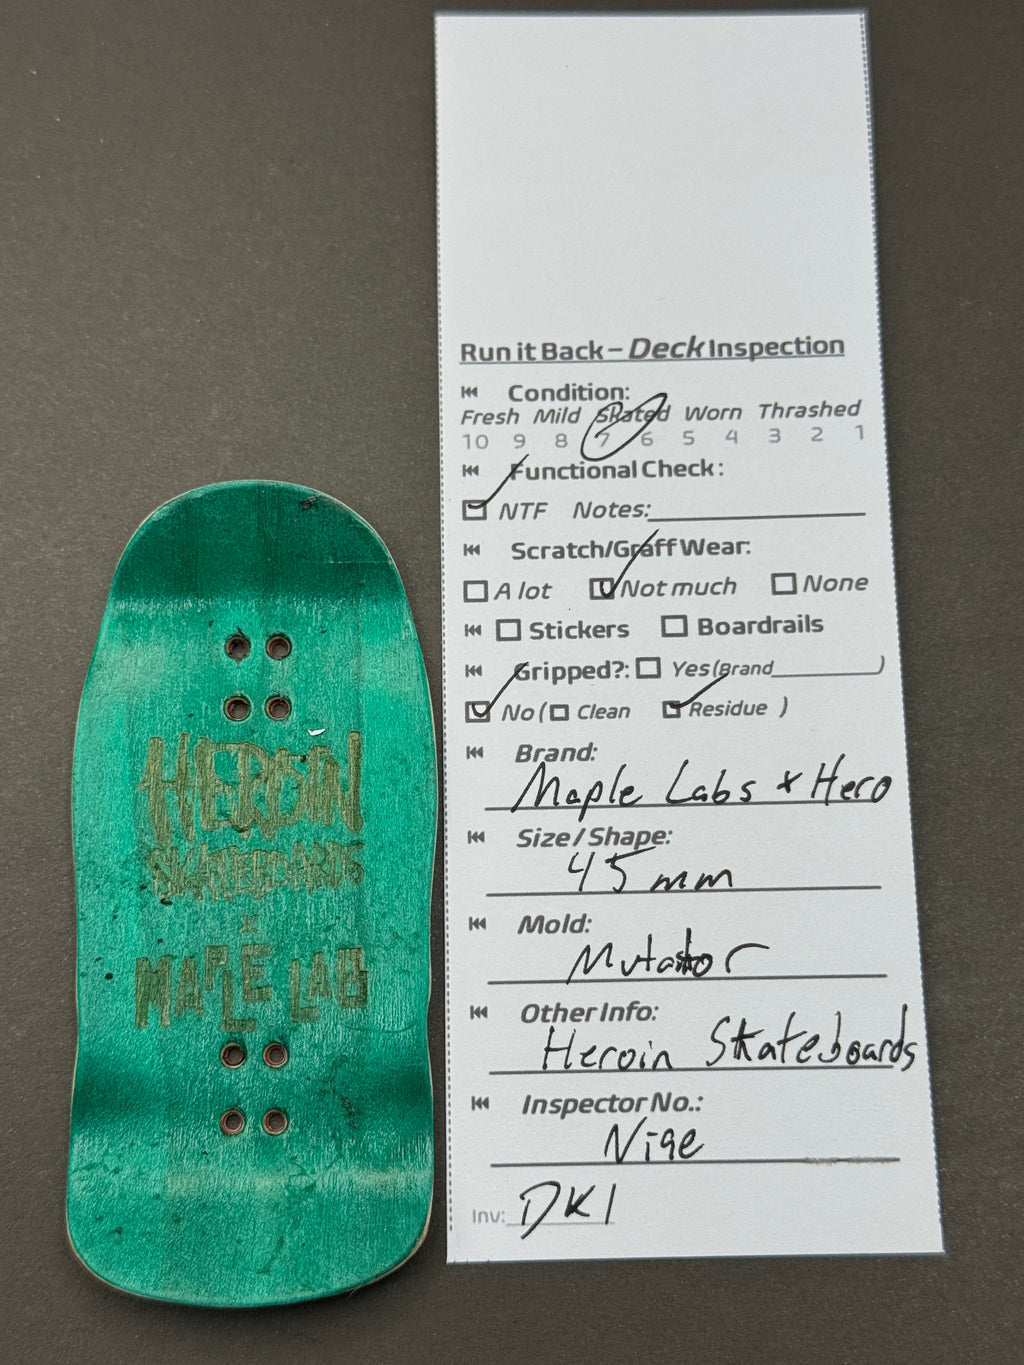 HEROIN
SKATEBOARDS
x
MAPLE LAB
Run it Back – Deck Inspection
Condition:
Fresh Mild Skated Worn Thrashed
10 9 8 7 6 5 4 3 2 1
Functional Check:
NTF Notes:
Scratch/Graff Wear:
A lot Not much None
Stickers Boardrails
Gripped?: Yes (Brand )
No ( Clean Residue )
Brand:
Maple Labs x Hero
Size / Shape:
45 mm
Mold:
Mutator
Other Info:
Heroin Skateboards
Inspector No.:
Nige
Inv: DK1